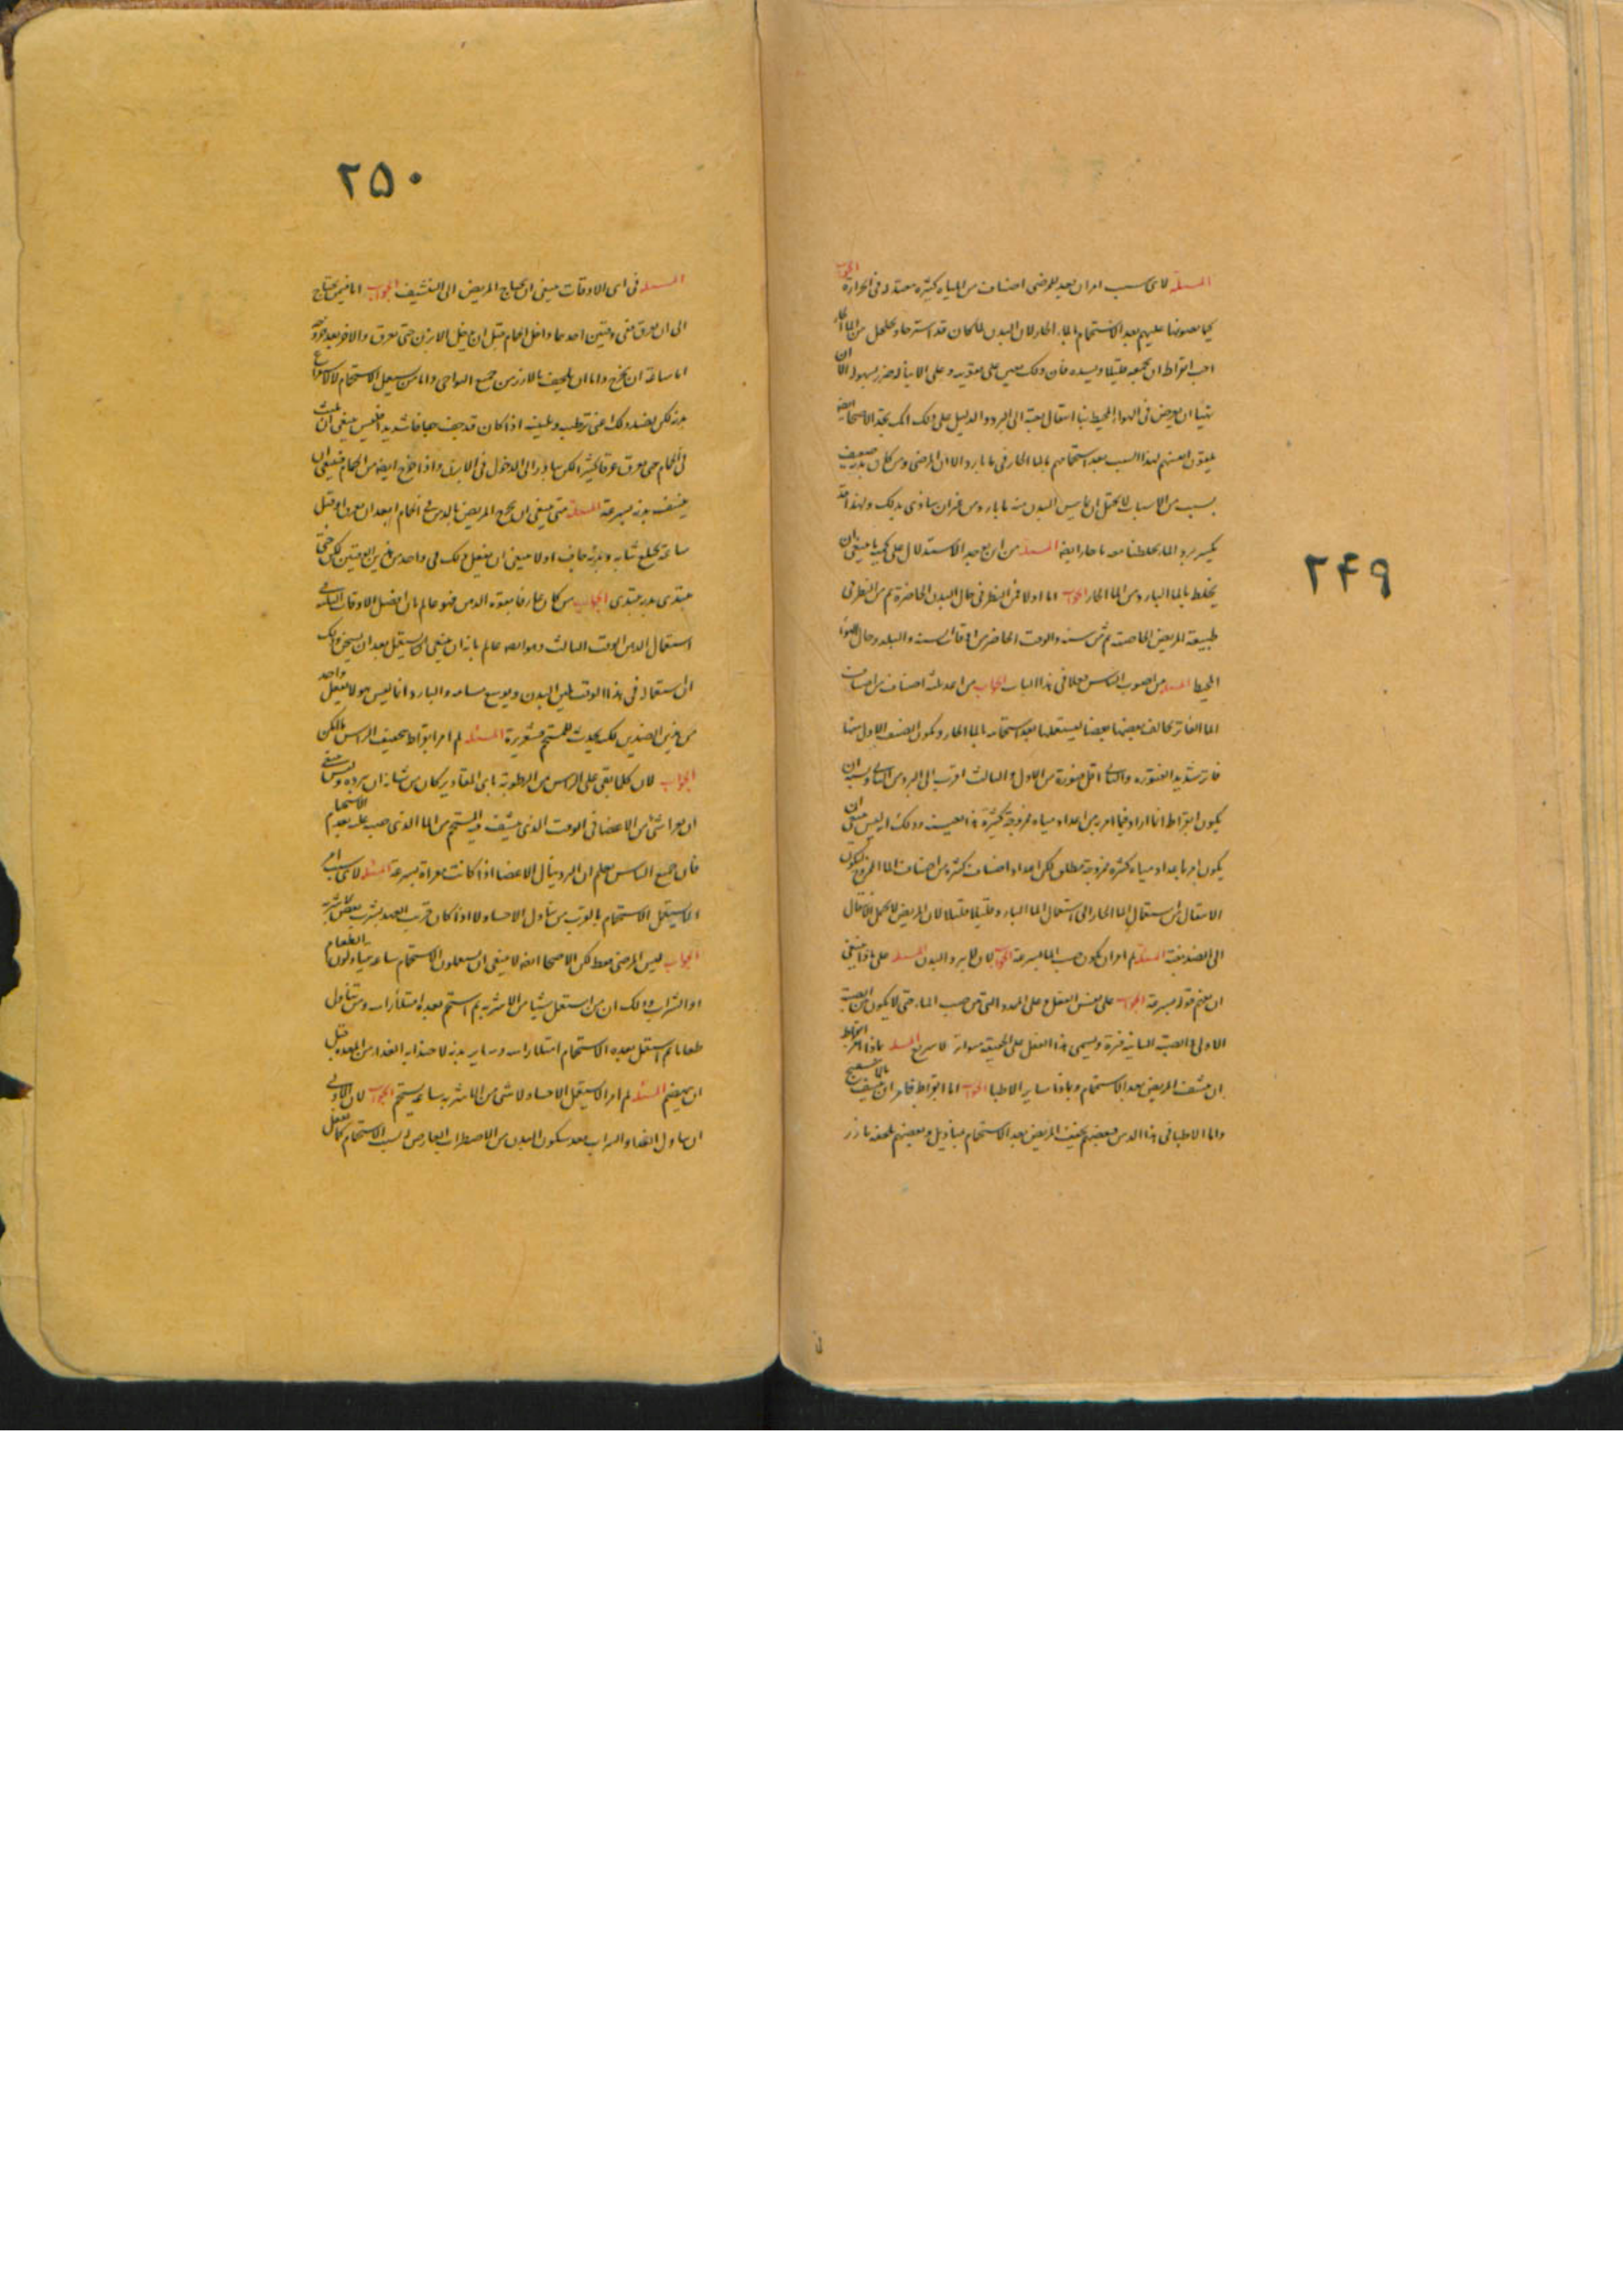 ٢٤٩
المسئلة لای سبب امر ان یعد للمرضی اصناف من المیاه کثیرة معتدله فی الحرارة الجواب
کیما یصبونها علیهم بعد الاستحمام بالماء الحار لان البدن لما کان قد استرخا وتخلخل من الماء الحار
احب ابقراط ان یجمعه قلیلا ویسده فان ذلک یعین علی تقویته وعلی الا یناله ضرر بسهوله الان
یتهیا ان یعرض فی الهواء المحیط بنا استحال بغتة الی البرد والدلیل علی ذلک انک تجد الاصحا ایضا
یلقون انفسهم لهذا السبب بعد استحمامهم بالماء الحار فی ماء بارد الا ان المرضی ومن کان بدنه ضعیف
بسبب من الاسباب لا یحتمل ان یماس البدن منه ماء بارد من غیر ان یتاذی بذلک ولهذا قد
یکسر برد الماء بخلطنا معه ماء حار ایضا المسئلة من این یوجد الاستدلال علی کمیة ما ینبغی ان
یخلط بالماء البارد من الماء الحار الجواب اما اولا فمن النظر فی حال البدن الحاضرة ثم من النظر فی
طبیعة المریض الخاصة ثم من سنه والوقت الحاضر من اوقات السنة والبلد وحال الهواء
المحیط المسئلة من اصوب الناس فعلا فی هذا الباب الجواب من اعد ثلثة اصناف من اصناف
الماء الفاتر یخالف بعضها بعضا لیستعملها بعد استحمامه بالماء الحار ویکون الصنف الاول منها
فاتر شدید الفتورة والثانی اقل فتورة من الاول والثالث اقرب الی البرد من الثانی ویشبه ان
یکون ابقراط انما اراد فیما امر به من اعداد میاه ممزوجة کثیرة هذا بعینه وذلک انه لیس ینبغی ان
یکون امر باعداد میاه کثیرة ممزوجة مطلق لکن اعداد اصناف کثیرة من اصناف الماء الممزوج لیکون
الانتقال من استعمال الماء الحار الی استعمال الماء البارد قلیلا قلیلا لان المریض لا یحتمل الانتقال
الی الضد بغتة المسئلة لم امر ان یکون صب الماء بسرعة الجواب لان لا یبرد البدن المسئلة علی ماذا ینبغی
ان یفهم قوله بسرعة الجواب علی نفس الفعل وعلی المدد التی من صب الماء حتی لا یکون بین الصبة
الاولی والصبة الثانیة فترة ویسمی هذا الفعل علی الحقیقة متواتر لا سریع المسئلة بماذا امر ابقراط
ان ینشف المریض بعد الاستحمام وبماذا سایر الاطبا الجواب اما ابقراط فامر ان ینشف بالاسفنج
واما الاطبا فی هذا الدهر فبعضهم یجفف المریض بعد الاستحمام بمنادیل وبعضهم یلحفه بازر
٢٥٠
المسئلة فی ای الاوقات ینبغی ان یحتاج المریض الی التنشیف الجواب اما فیمن یحتاج
الی ان یعرق ففی وقتین احدهما داخل الحمام قبل ان یدخل الابزن حتی یعرق والاخر بعد خروجه
اما ساعة ان یخرج واما ان یلحف بالازر من جمیع النواحی واما من یستعمل الاستحمام لا لاستفراغ
بدنه لکن لضد ذلک اعنی ترطیبه وتلیینه اذا کان قد جف جفافا شدیدا فلیس ینبغی ان یلبث
فی الحمام حتی یعرق عرقا کثیرا لکن یبادر الی الدخول فی الابزن واذا خرج ایضا من الحمام فینبغی ان
ینشف بدنه بسرعة المسئلة متی ینبغی ان یمرخ المریض بالدهن فی الحمام ابعد ان یعرق او قبل
ساعة یخلع ثیابه وبدنه جاف اولا ینبغی ان یفعل ذلک فی واحد من هذین الوقتین لکن حتی
یبتدی بدنه یتندی الجواب من کان عارفا بقوة الدهن فهو عالم بان افضل الاوقات التی
استعمال الدهن الوقت الثالث وهو ایضا عالم بانه ان ینبغی ان یستعمل بعد ان یسخن وذلک
ان استعماله فی هذا الوقت یلین البدن ویوسع مسامه والبارد انما لیس هو لا یفعل واحد
من هذین الضدین لکن یحدث للمستحم قشعریرة المسئلة لم امر ابقراط بتجفیف الراس بالاکثر
الجواب لان کلما یبقی علی الراس من الرطوبة بای المقادیر کان من شانه ان یبرده ولیس ینبغی
ان یعرا شی من الاعضا فی الوقت الذی ینشف فیه المستحم من الماء الذی صب علیه بعد الاستحمام
فان جمیع الناس یعلم ان البرد ینال الاعضا اذا کانت معراة بسرعة المسئلة لای سبب امر
الا یستعمل الاستحمام بالقرب من تناول الاحساء ولا اذا کان قریب العهد بشرب بعض الاشربة
الجواب لیس المرضی فقط لکن الاصحا ایضا لا ینبغی ان یستعملون الاستحمام ساعة یتناولون الطعام
او الشراب وذلک ان من استعمل شیئا من الاشربة ثم استحم بعده امتلا راسه ومن تناول
طعاما ثم استعمل بعده الاستحمام امتلا راسه وسایر بدنه لاجتذاب الغداء من المعده قبل
ان ینهضم المسئلة لم امر الا یستعمل الاحساء ولا شی من الاشربة ساعة یستحم الجواب لان الاولی
ان یتناول الغذاء والشراب بعد سکون البدن من الاضطراب العارض له بسبب الاستحمام کما یفعل